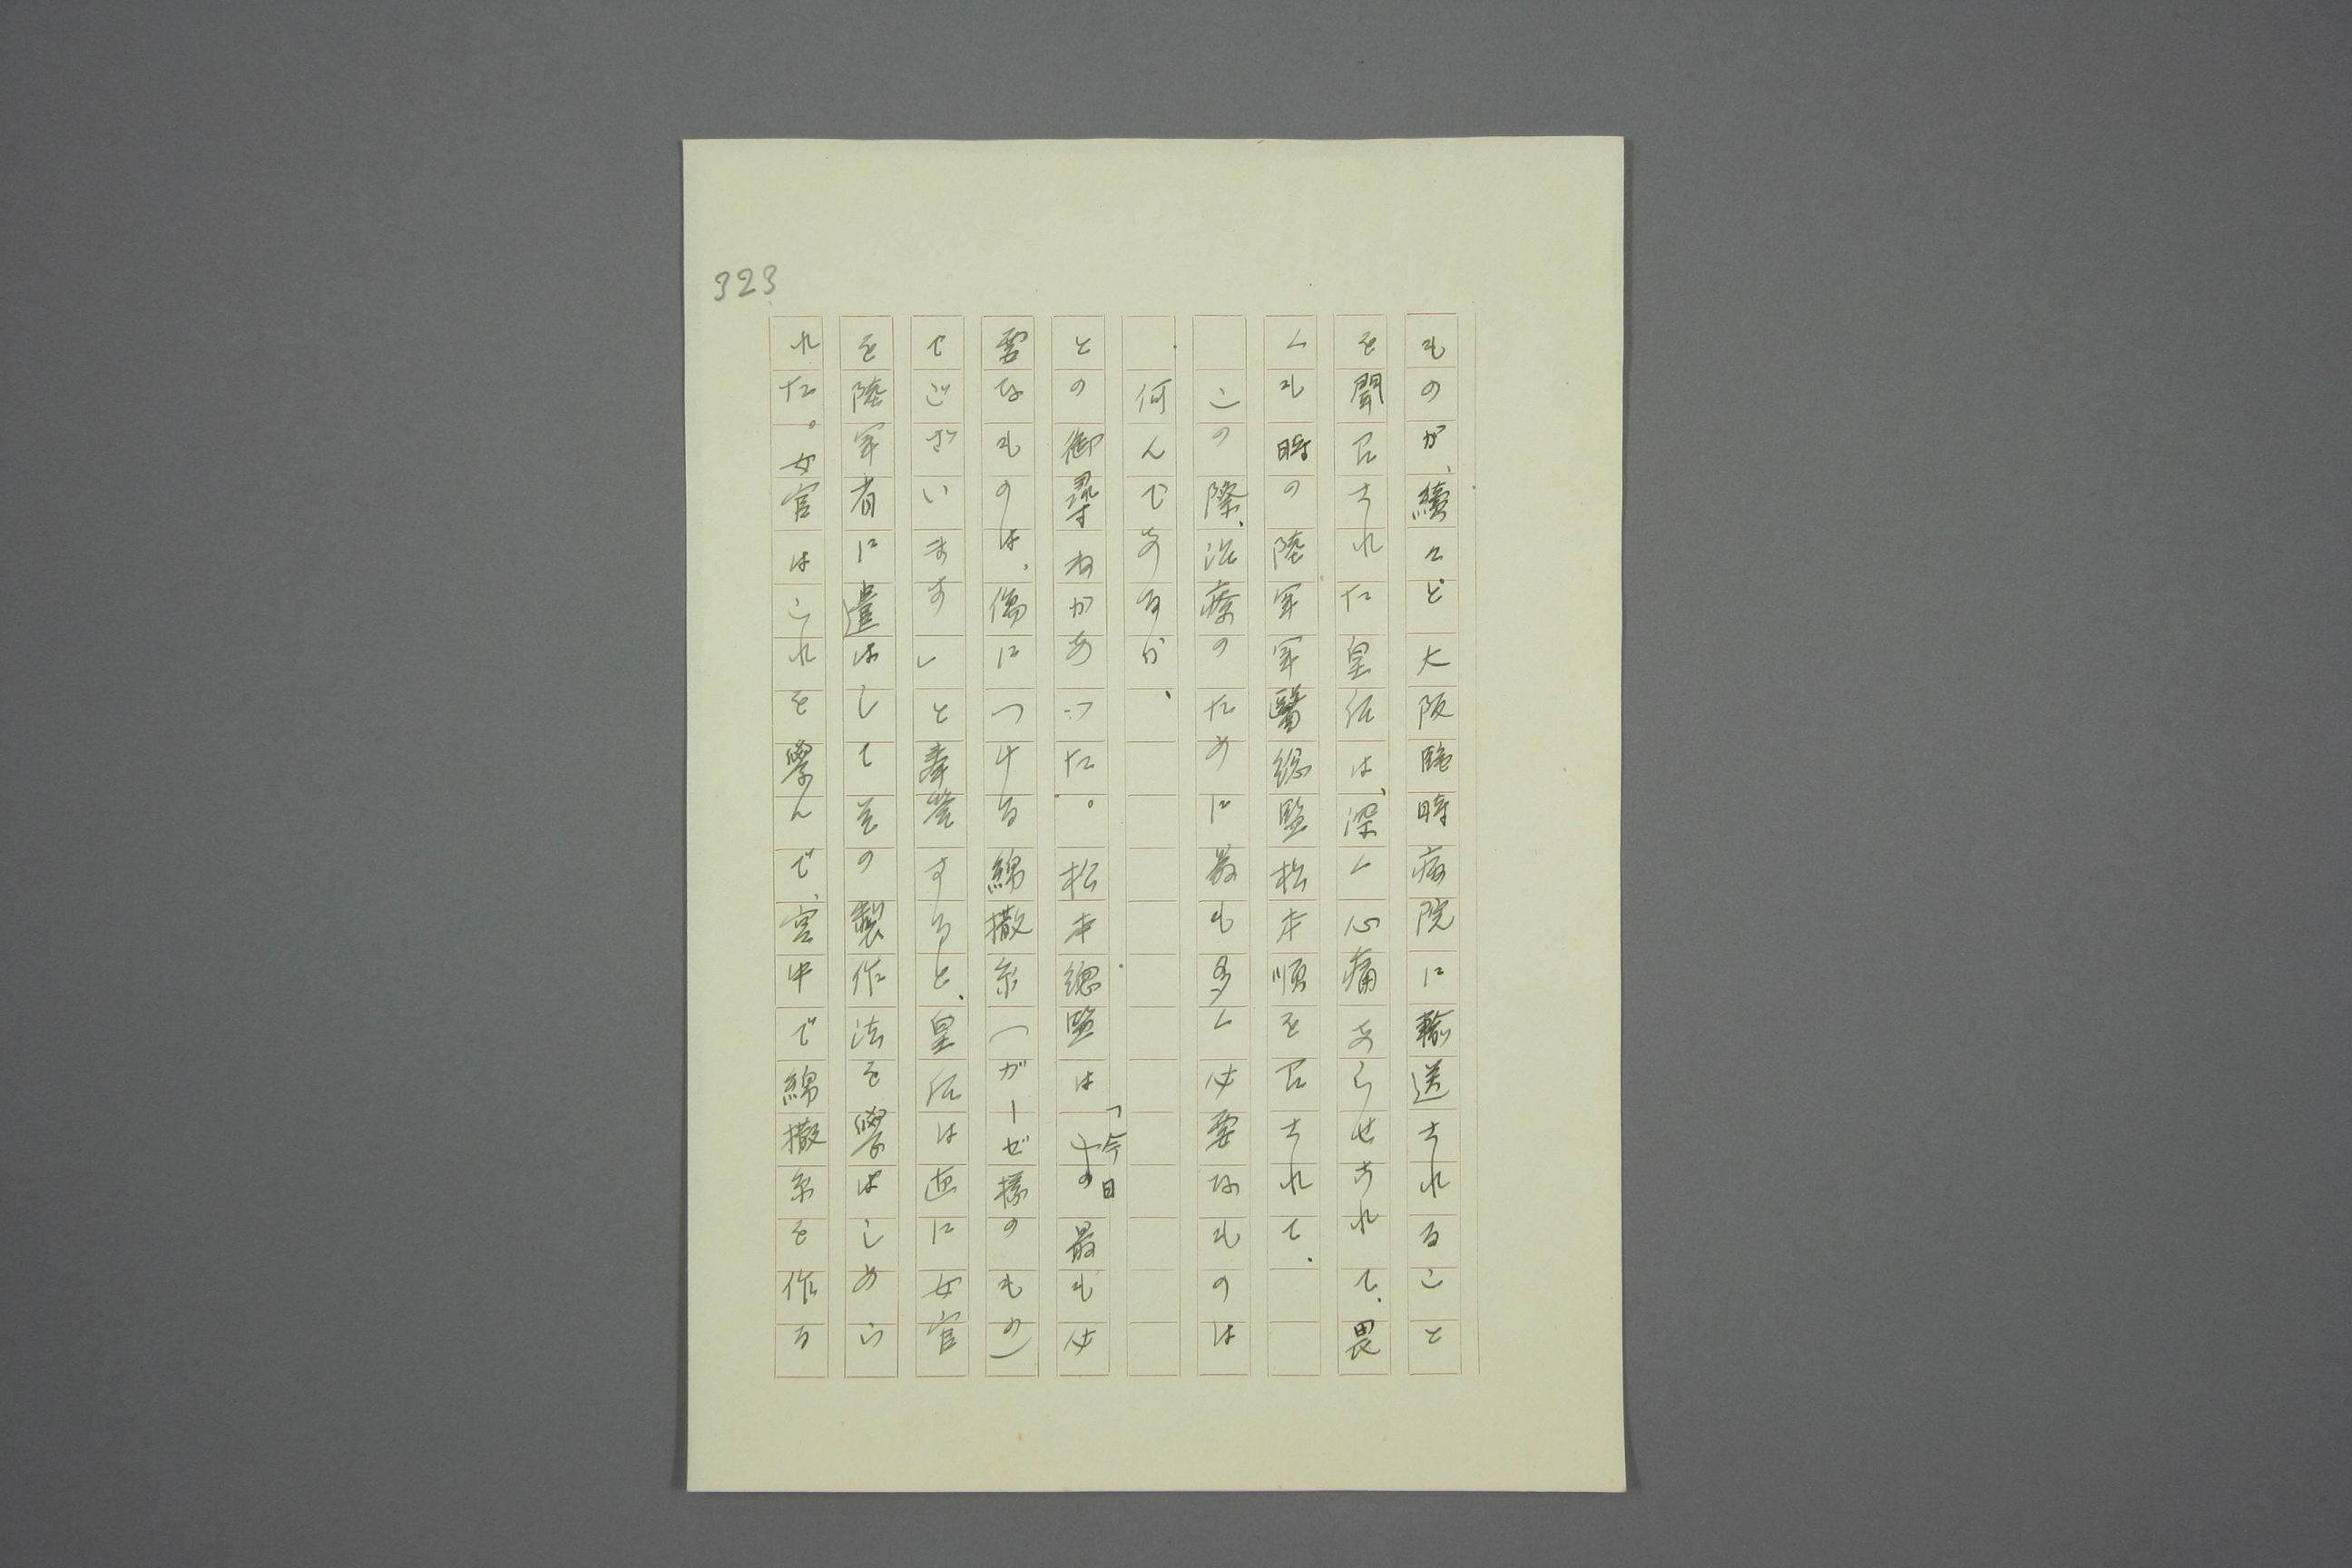 323
ものが、續々と大阪臨時病院に輸送されること
を聞召された皇后は、深く心痛あらせられて、畏
くも時の陸軍軍醫総監松本順を召されて、
この際、治療のために最も多く必要なものは
何んであるか、
との御尋ねがあつた。松本総監は「今日の最も必
要なものは、傷につける綿撒糸（ガーゼ様のもの）
でございます」と奉答すると、皇后は直に女官
を陸軍省に遣はして其の製作法を學ばしめら
れた。女官はこれを學んで、宮中で綿撒糸を作る